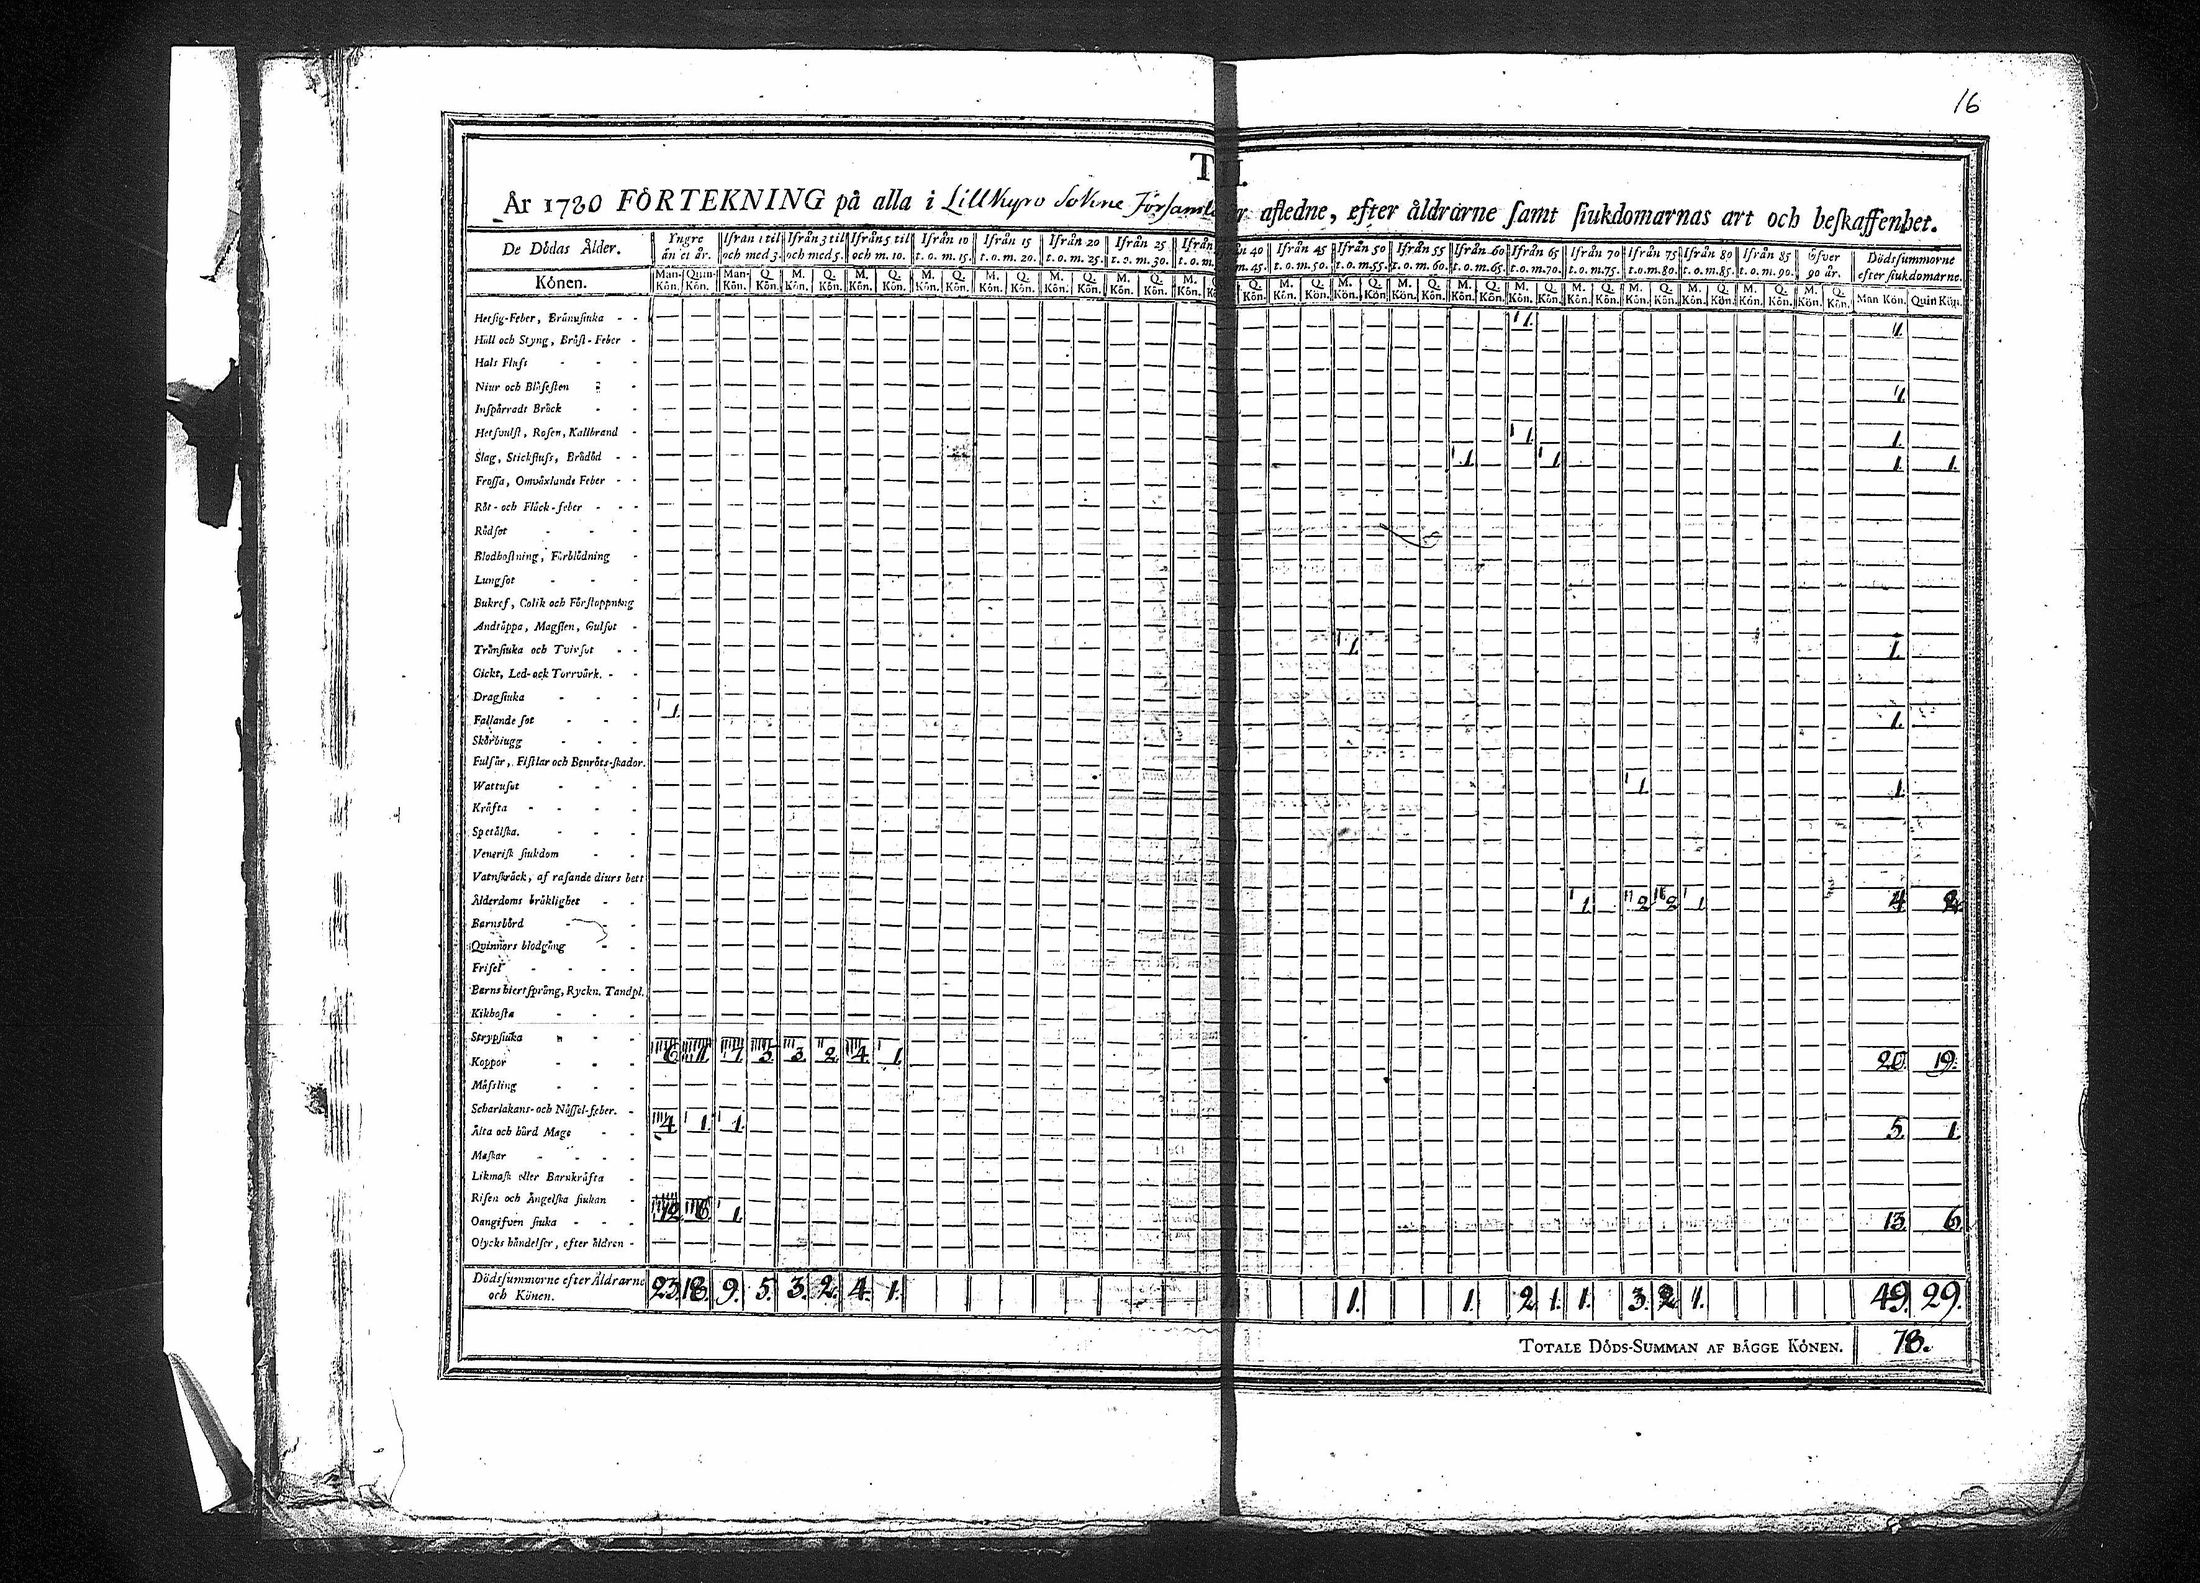 16
År 1780 FÖRTEKNING på alla i Lillkyro Sokne afledne, efter åldrarne samt siukdomarnas art och beskaffenhet.
De Dödas Ålder. Yngre än et år. Ifrån 1 til och med 3. Ifrån 3 til och med 5. Ifrån 5 til och m. 10. Ifrån 10 t. o. m. 15. Ifrån 15 t. o. m. 20. Ifrån 20 t. o. m. 25. Ifrån 25 t. o. m. 30. Ifrån 45 t. o. m. 50. Ifrån 50 t. o. m. 55. Ifrån 55 t. o. m. 60. Ifrån 60 t. o. m. 65. Ifrån 65 t. o. m. 70. Ifrån 70 t. o. m. 75. Ifrån 75 t. o. m. 80. Ifrån 80 t. o. m. 85. Ifrån 85 t. o. m. 90. Öfver 90 år. Dödssummorne efter siukdomarne.
Könen. Man-Kön. Quin-Kön. Man-Kön. Q. Kön. M. Kön. Q. Kön. M. Kön. Q. Kön. M. Kön. Q. Kön. M. Kön. Q. Kön. M. Kön. Q. Kön. M. Kön. Q. Kön. M. Kön. Q. Kön. M. Kön. Q. Kön. M. Kön. Q. Kön. M. Kön. Q. Kön. M. Kön. Q. Kön. M. Kön. Q. Kön. M. Kön. Q. Kön. M. Kön. Q. Kön. M. Kön. Q. Kön. M. Kön. Q. Kön. M. Kön. Q. Kön. Man Kön. Quin Kön.
Hetsig-Feber, Brännsiuka 1. 1.
Håll och Styng, Bröst-Feber
Hals Fluss
Niur och Blåsesten 1.
Inspärradt Bråck
Hetsvulst, Rosen, Kallbrand 1. 1.
Slag, Stickfluss, Brådöd 1. 1. 1. 1.
Frossa, Omväxlande Feber
Röt- och Fläck-feber
Rödsot
Blodhostning, Förblödning
Lungsot
Bukref, Colik och Förstoppning
Andtäppa, Magsten, Gulsot
Trånsiuka och Tvinsot 1. 1.
Gickt, Led- och Torrvärk.
Dragsiuka
Fallande sot 1. 1.
Skörbiugg
Fulsår, Fistlar och Benröts-skador.
Wattusot 1. 1.
Kräfta
Spetälska.
Venerisk siukdom
Vatnskräck, af rasande diurs bett
Ålderdoms bräklighet 1. 2. 2. 1. 4 2.
Barnsbörd
Qvinnors blodgång
Frisel
Barns hiertsprång, Ryckn. Tandpl.
Kikhosta
Strypsiuka
Koppor 6. 11. 7. 5. 3. 2. 4. 1. 20. 19.
Mässling
Scharlakans- och Nässel-feber.
Älta och hård Mage 4. 1. 1. 5. 1.
Maskar
Likmask eller Barnkräfta
Risen och Ängelska siukan
Oangifven siuka 12. 6. 1. 13. 6.
Olycks händelser, efter åldren
Dödssummorne efter Åldrarne och Könen. 23. 18. 9. 5. 3. 2. 4. 1. 1. 1. 2. 1. 1. 3. 2. 1. 49. 29.
TOTALE DÖDS-SUMMAN AF BÄGGE KÖNEN. 78.